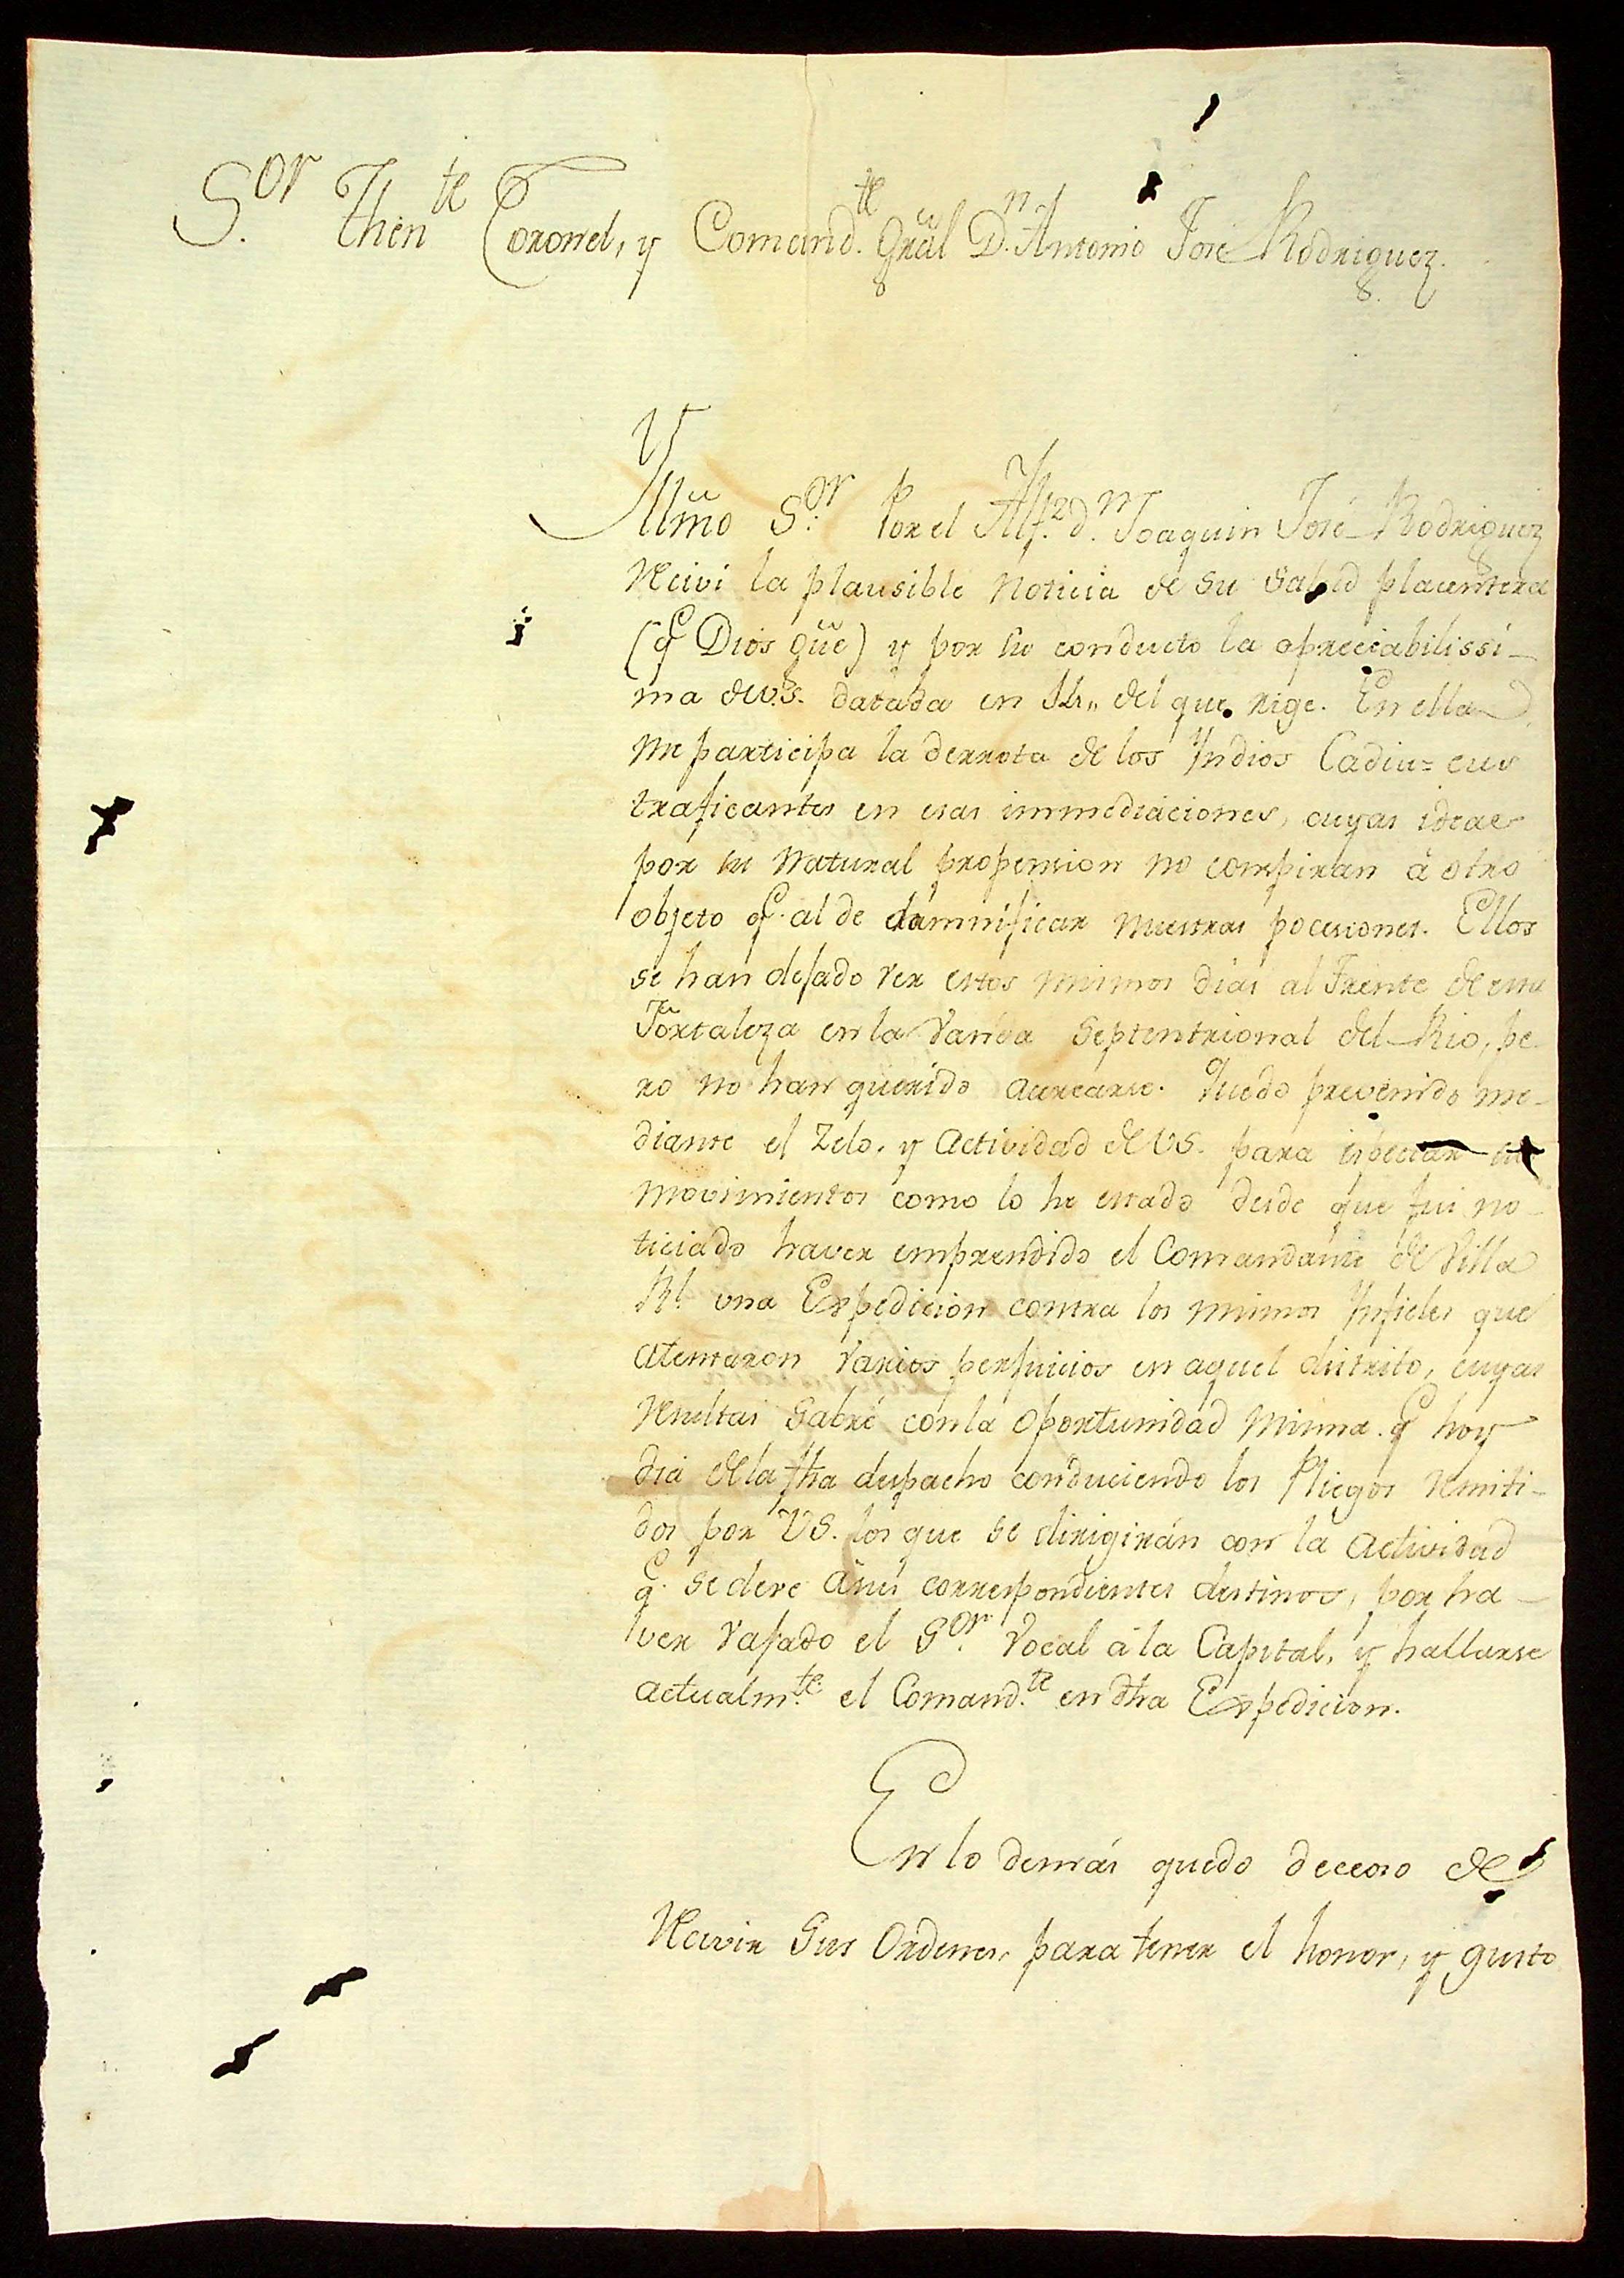 S.or Then.te Coronel, y Comand.te Gräl D.n Antonio José Rodriguez.
Yllmo S.or Por el Alf.z d.n Joaquin José Rodriguez
Recivi la plausible noticia de su salud placentera
(q.e Dios güe) y por su conducto la apreciabilissi-
ma de V.S. datada en del que rige. En ella
me participa la derrota de los Yndios Cadiu=eus
traficantes en esas immediaciones, cuyas ideas
por su natural propension no conspiran â otro
objeto q.e al de damnificar nuestras pocesiones. Ellos
se han dejado ver estos mismos dias al Frente de esta
Fortaleza en la vanda Septentrional del Rio, pe-
ro no han querido acercarse. Quedo prevenido me-
diante el Zelo, y actividad de VS. para espectar sus
movimientos como lo he estado desde que fui no-
ticiado haver emprendido el Comandante de Villa
R.l una Expedicion contra los mismos Ynfieles que
atentaron varios perjuicios en aquel distrito, cuyas
resultas sabré con la oportunidad misma q.e hoy
dia de la fha despacho conduciendo los Pliegos remiti-
dos por VS. los que se dirigirán con la actividad
q.e se deve â sus correspondientes destinos, por ha-
ver vajado el S.or Vocal â la Capital, y hallarse
actualm.te el Comand.te en dha Expedicion.
En lo demás quedo deceoso de
Recivir Sus Ordenes, para tener el honor, y gusto